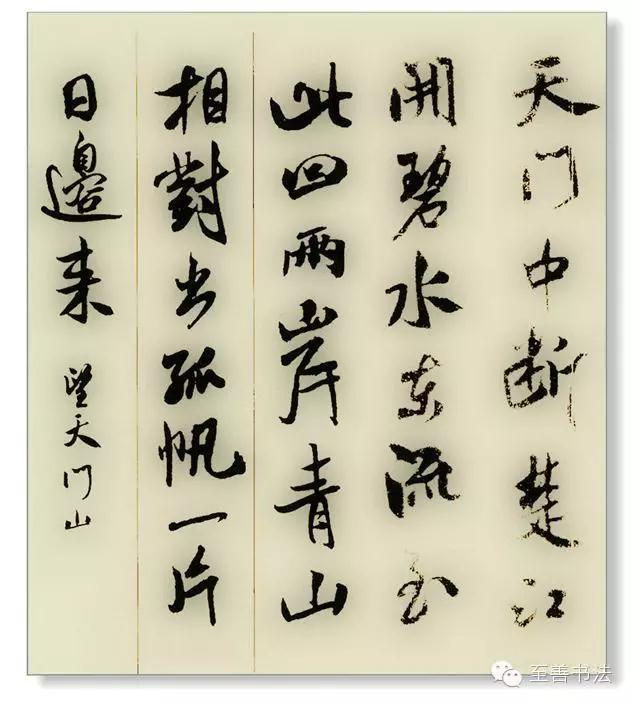 天门中断楚江
開碧水东流至
此回兩岸青山
相對出孤帆一片
日邊来
望天门山
至善书法